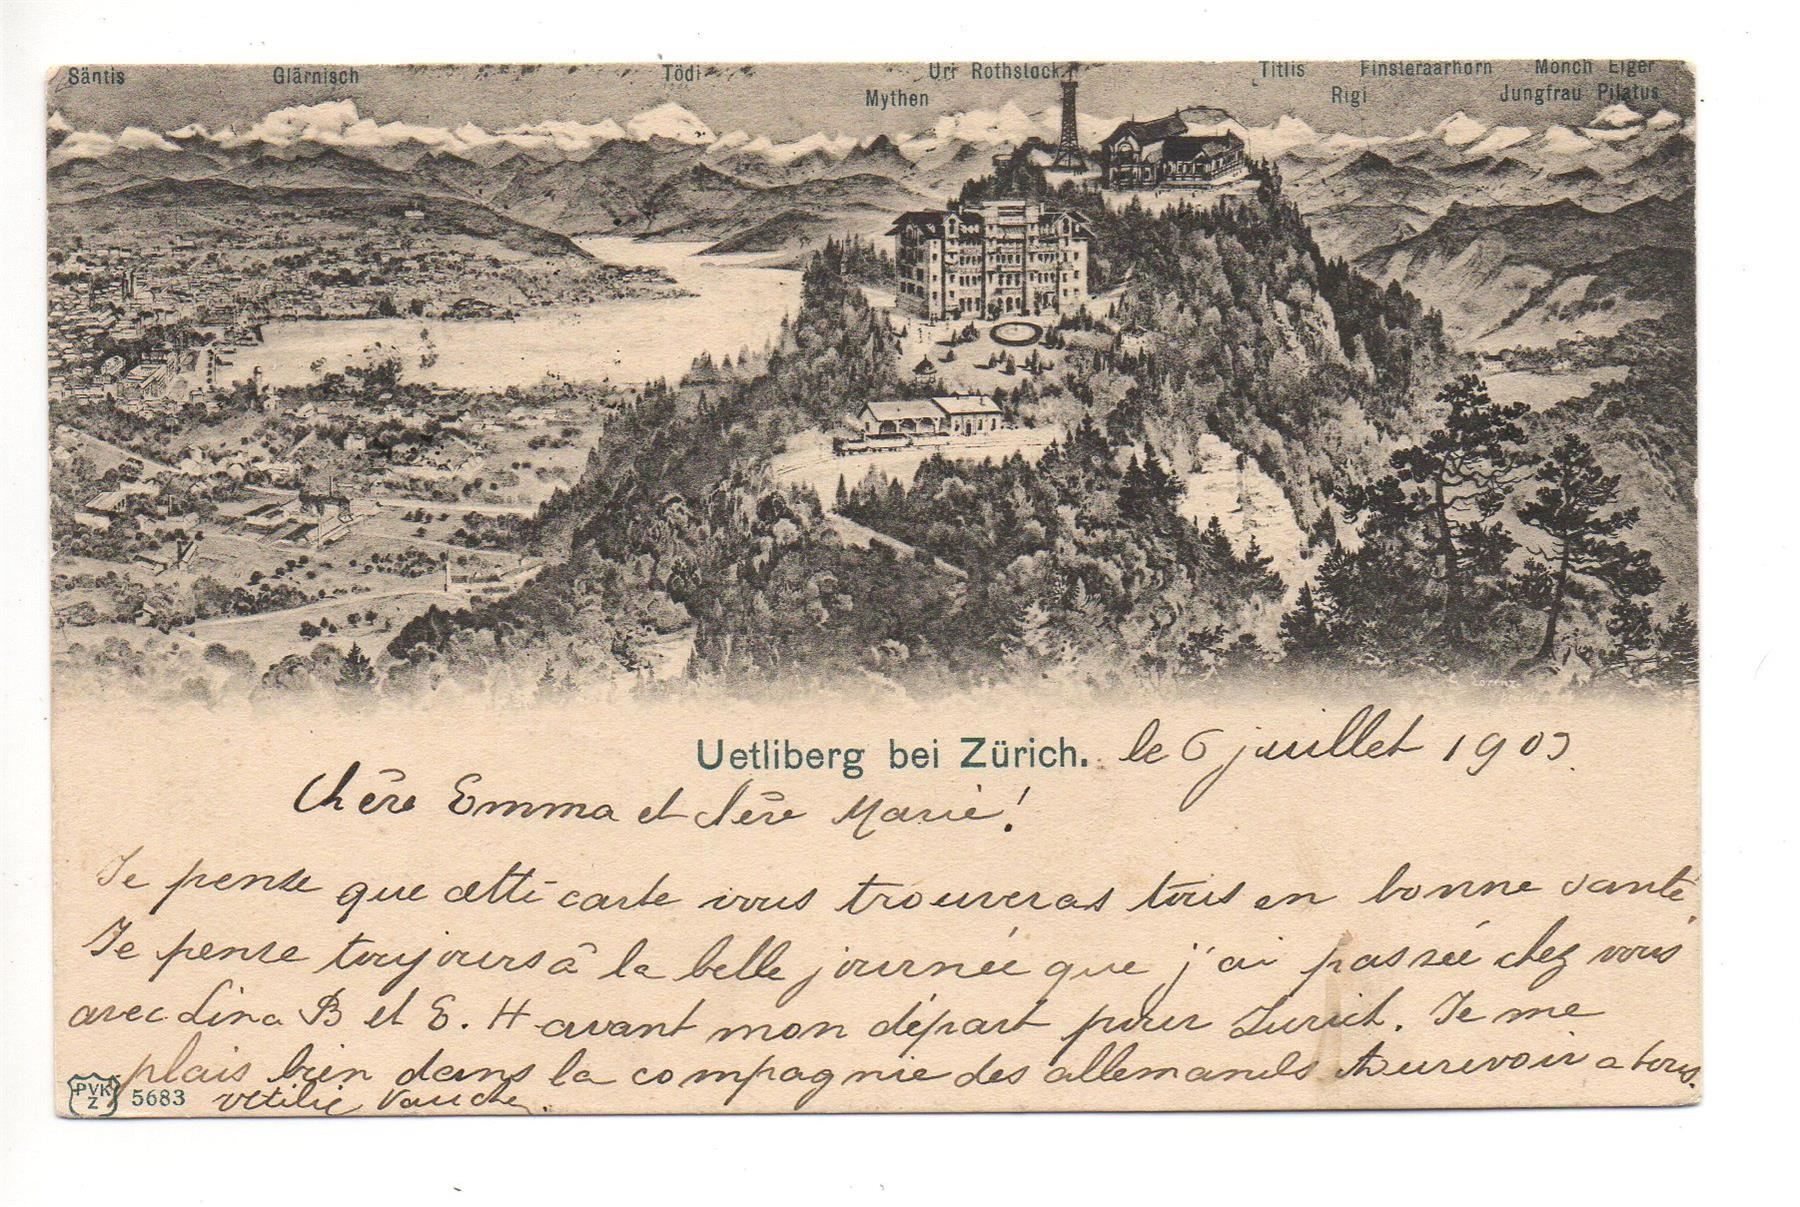 Säntis Glärnisch Tödi Uri Rothstock Titlis Finsteraarhorn Mönch Eiger
Mythen Rigi Jungfrau Pilatus
Uetliberg bei Zürich. le 6 juillet 1903.
Chère Emma et chère Marie!
Je pense que cette carte vous trouveras tous en bonne santé.
Je pense toujours à la belle journée que j'ai passée chez vous
avec Lina B et E. H avant mon départ pour Zurich. Je me
plais bien dans la compagnie des allemands Aurevoir a tous.
PVK Z 5683 Vauche